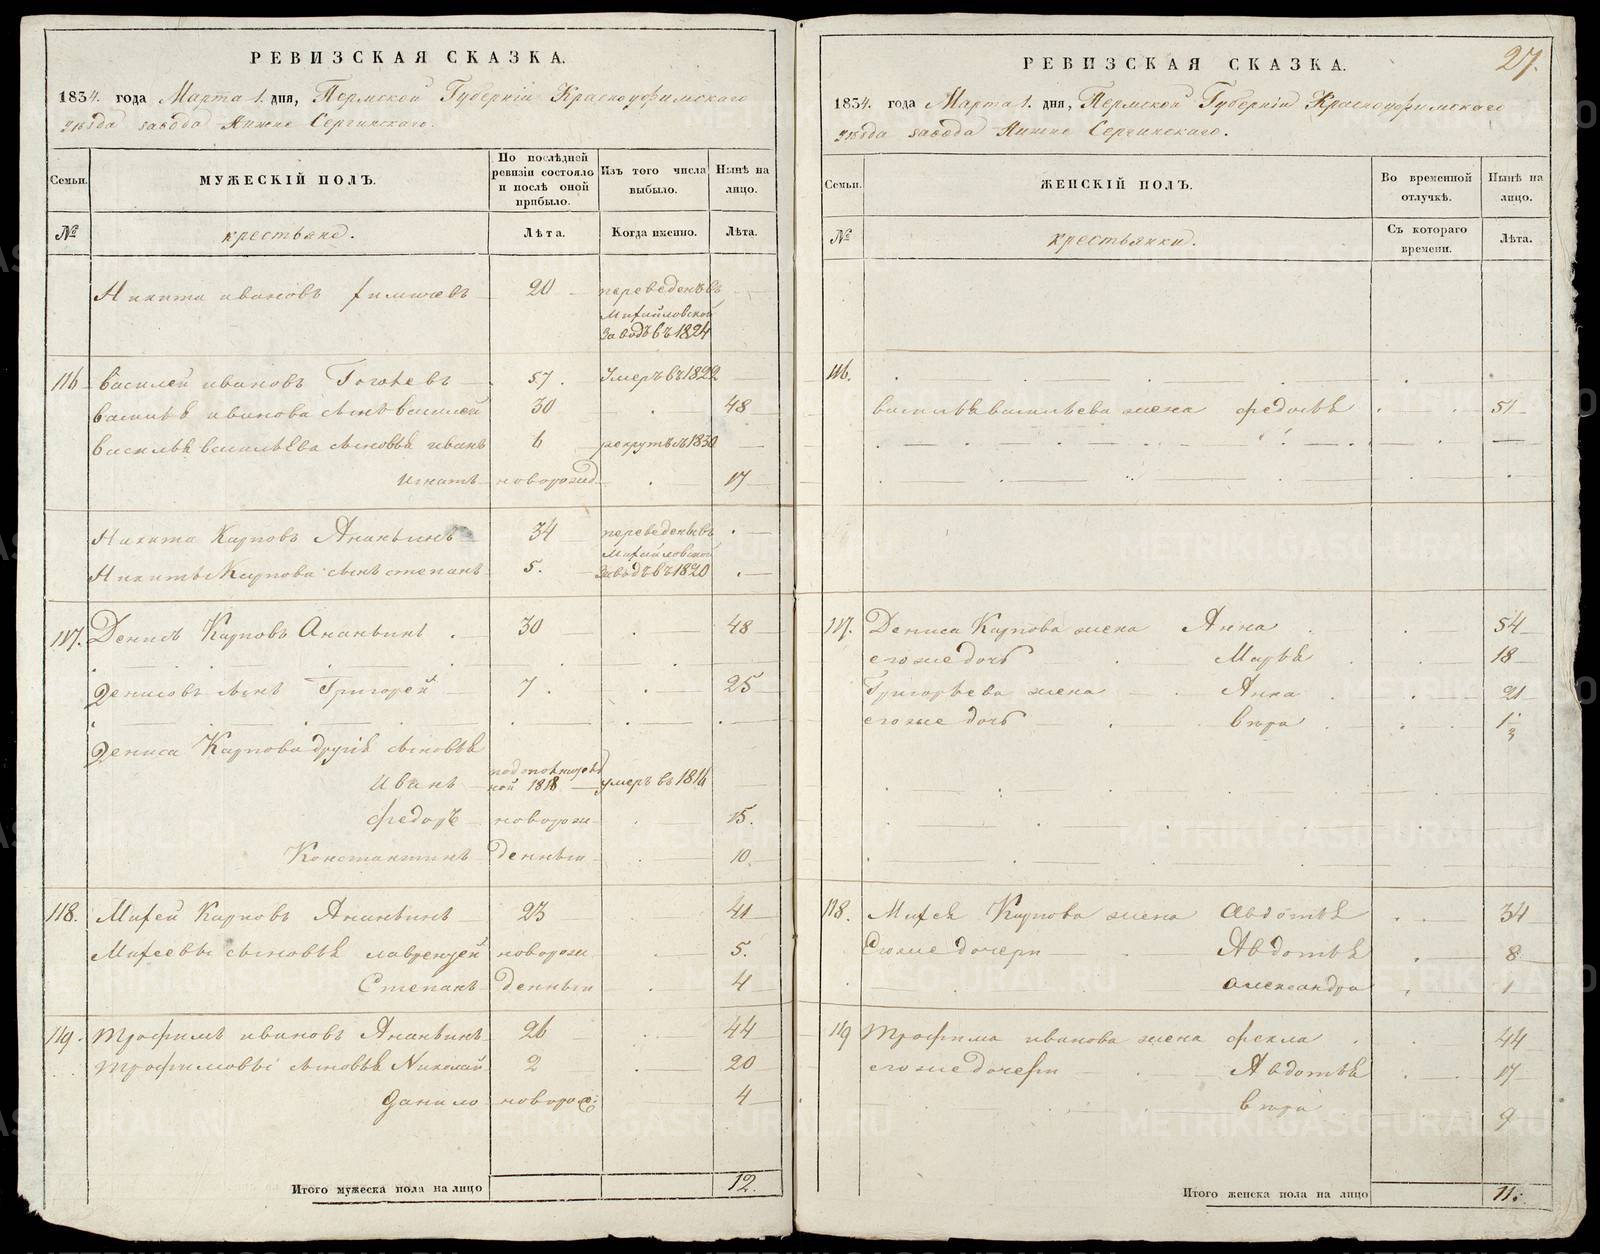 РЕВИЗСКАЯ СКАЗКА.
1834. года Марта 1. дня, Пермской Губернiи Красноуфимскаго
уѣзда завода Нижне Сергинскаго.
Семьи.
МУЖЕСКIЙ ПОЛЪ.
По послѣдней ревизiи состояло и послѣ оной прибыло.
Изъ того числа выбыло.
Нынѣ на лицо.
№
крестьяне.
Лѣта.
Когда именно.
Лѣта.
Никита Ивановъ 20 переведенъ въ
Михайловской
заводъ въ 1824
116 Василей Ивановъ 57. Умеръ въ 1822
Василья Иванова сынъ Василей 30 48
Василья Васильева сыновья Иванъ 6 рекрутъ въ 1830
Игнатъ новорожд 17
Никита Карповъ Ананьинъ 34 переведены въ
Михайловской
Никиты Карпова сынъ Степанъ 5. заводъ въ 1820
117. Денисъ Карповъ Ананьинъ 30 48
Денисовъ сынъ Григорей 7. 25
Дениса Карпова другiя сыновья
Иванъ 1818 умеръ въ 1816
Федоръ новорож 15.
Константинъ денныи 10.
118. Михей Карповъ Ананьинъ 23 41
Михеевы сыновья Лаврентей новорож 5.
Степанъ денныи 4
119. Трофимъ Ивановъ Ананьинъ 26 44
Трофимовы сыновья Николай 2 20
Данило новорож: 4
Итого мужеска пола на лицо 12.
27.
РЕВИЗСКАЯ СКАЗКА.
1834. года Марта 1. дня, Пермской Губернiи Красноуфимскаго
уѣзда завода Нижне Сергинскаго.
Семьи.
ЖЕНСКIЙ ПОЛЪ.
Во временной отлучкѣ.
Нынѣ на лицо.
№
крестьянки.
Съ котораго времени.
Лѣта.
116.
Василья Васильева жена Федосья 51
117. Дениса Карпова жена Анна 54
его же дочь Марья 18
Григорьева жена Анна 21
его же дочь Вера 1/3
118. Михея Карпова жена Авдотья 34
Его же дочери Авдотья 8
Александра 1
119 Трофима Иванова жена Фекла 44
его же дочери Авдотья 17
Вера 9
Итого женска пола на лицо 11:
METRIKI.GASO-URAL.RU